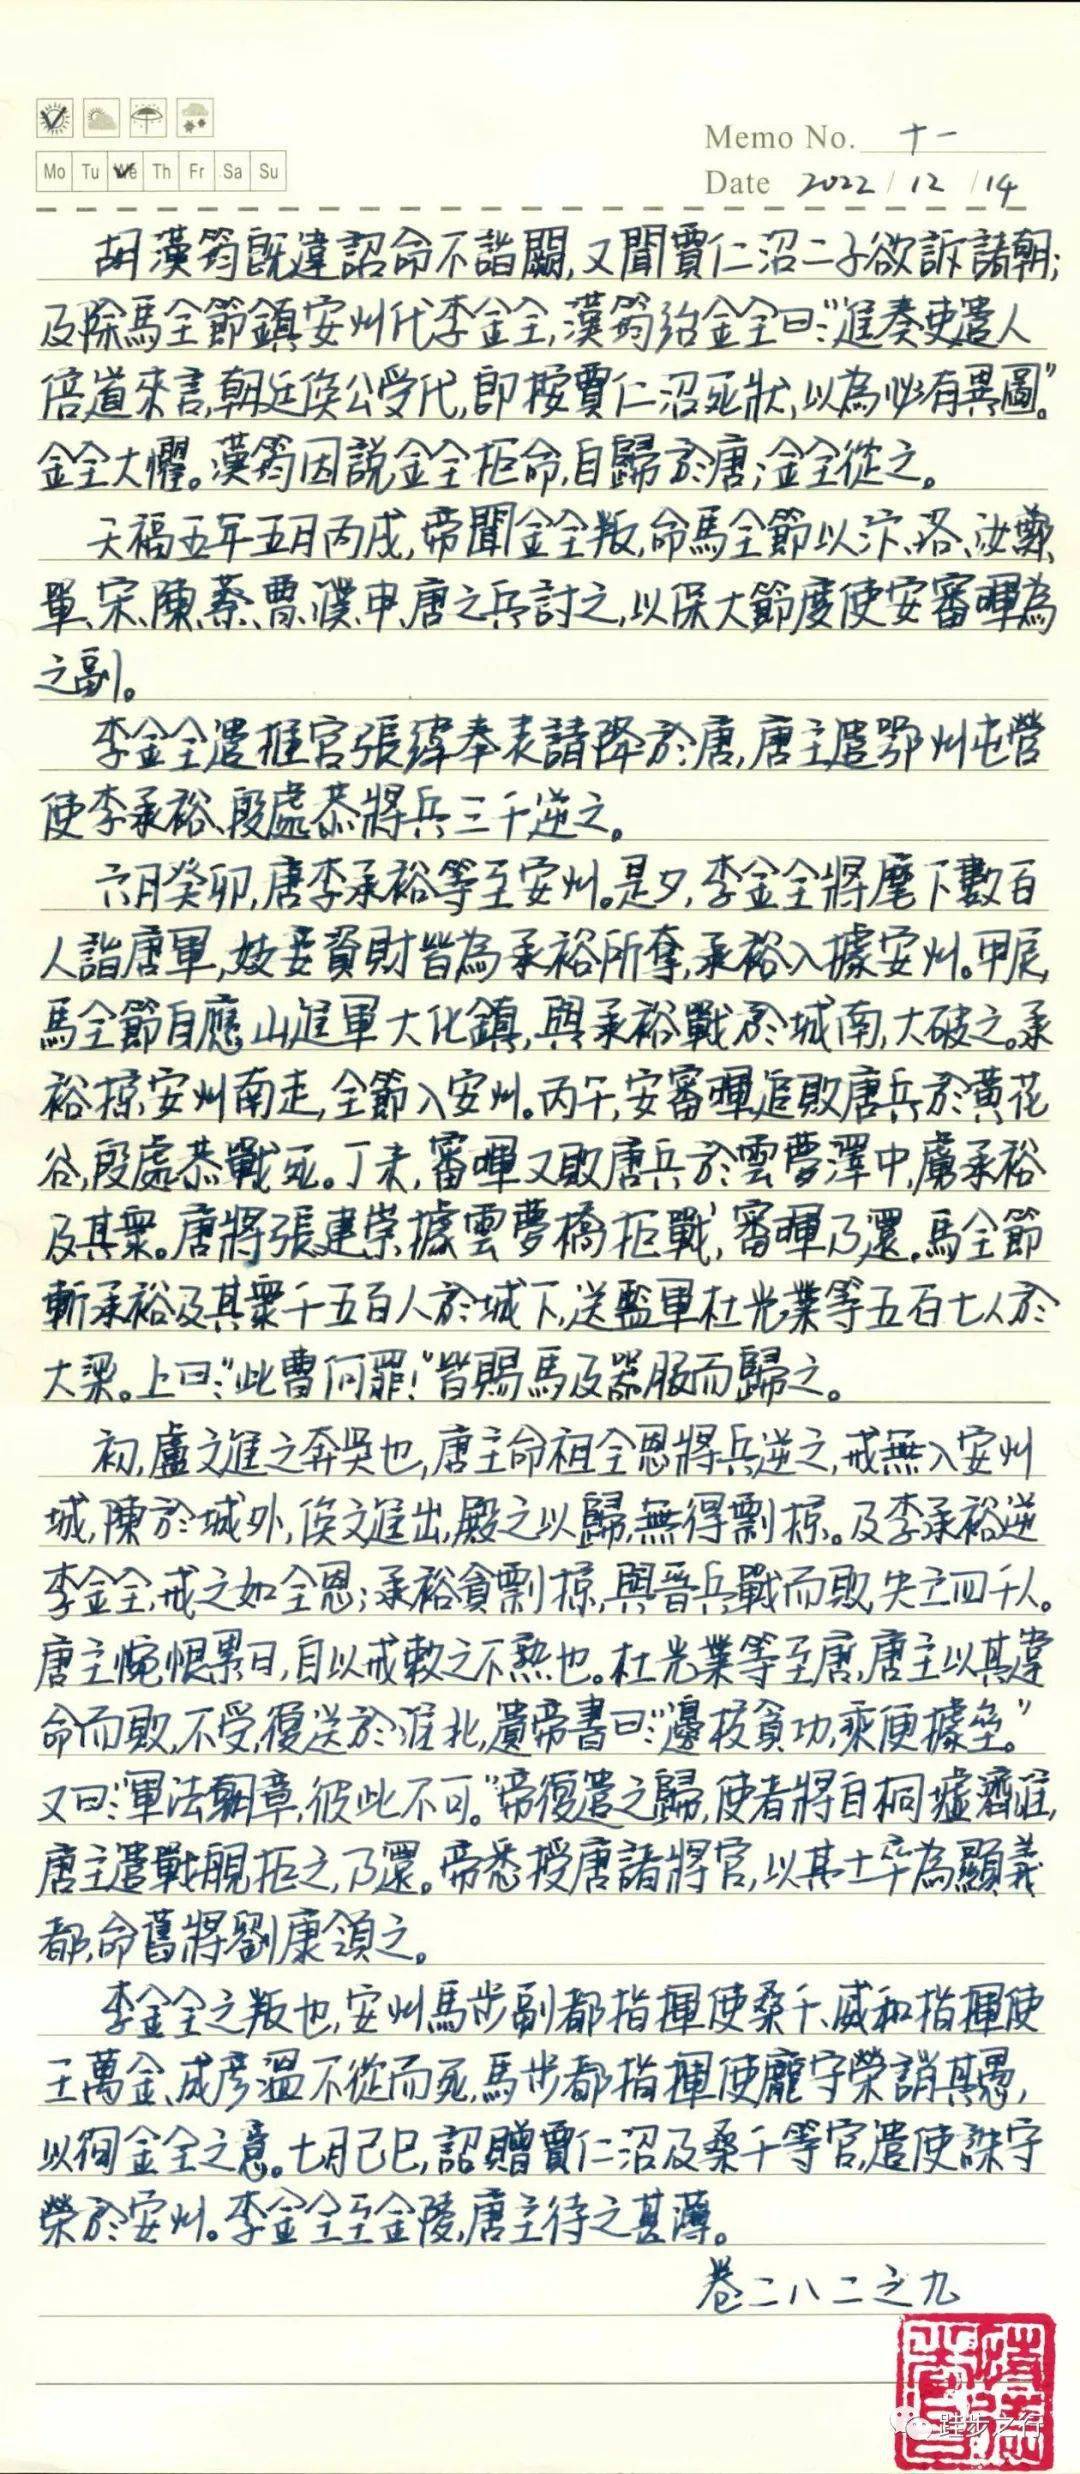 Memo No. 十一
Mo Tu We Th Fr Sa Su
Date 2022/12/14
胡漢筠既違詔命不詣闕,又聞賈仁沼二子欲訴諸朝;
及除馬全節鎮安州代李金全,漢筠紿金全曰:“進奏吏遣人
倍道來言,朝廷俟公受代,即按賈仁沼死狀,以為必有異圖。”
金全大懼。漢筠因說金全拒命,自歸於唐;金全從之。
天福五年五月丙戌,帝聞金全叛,命馬全節以汴、洛、汝、鄭、
單、宋、陳、蔡、曹、濮、申、唐之兵討之,以保大節度使安審暉為
之副。
李金全遣推官張緯奉表請降於唐,唐主遣鄂州屯營
使李承裕、段處恭將兵三千逆之。
六月癸卯,唐李承裕等至安州。是夕,李金全將麾下數百
人詣唐軍,妓妾資財皆為承裕所奪,承裕入據安州。甲辰,
馬全節自應山進軍大化鎮,與承裕戰於城南,大破之。承
裕掠安州南走,全節入安州。丙午,安審暉追敗唐兵於黃花
谷,段處恭戰死。丁未,審暉又敗唐兵於雲夢澤中,虜承裕
及其衆。唐將張建崇據雲夢橋拒戰,審暉乃還。馬全節
斬承裕及其衆千五百人於城下,送監軍杜光業等五百七人於
大梁。上曰:“此曹何罪!”皆賜馬及器服而歸之。
初,盧文進之奔吳也,唐主命祖全恩將兵逆之,戒無入安州
城,陳於城外,俟文進出,殿之以歸,無得剽掠。及李承裕逆
李金全,戒之如全恩;承裕貪剽掠,與晉兵戰而敗,失亡四千人。
唐主惋恨累日,自以戒敕之不熟也。杜光業等至唐,唐主以其違
命而敗,不受,復送於淮北,遺帝書曰:“邊校貪功,乘便據壘。”
又曰:“軍法朝章,彼此不可。”帝復遣之歸,使者將自桐墟濟淮,
唐主遣戰艦拒之,乃還。帝悉授唐諸將官,以其士卒為顯義
都,命舊將劉康領之。
李金全之叛也,安州馬步副都指揮使桑千、威和指揮使
王萬金、成彥溫不從而死,馬步都指揮使龐守榮誚其愚,
以徇金全之意。七月己巳,詔贈賈仁沼及桑千等官,遣使誅守
榮於安州。李金全至金陵,唐主待之甚薄。
卷二八二之九
跬步之行